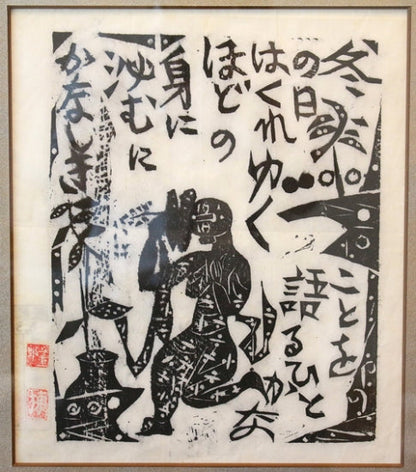 冬
の日
はくれゆく
ほどの
身に
沁むに
かなしき
ことを
語るひと